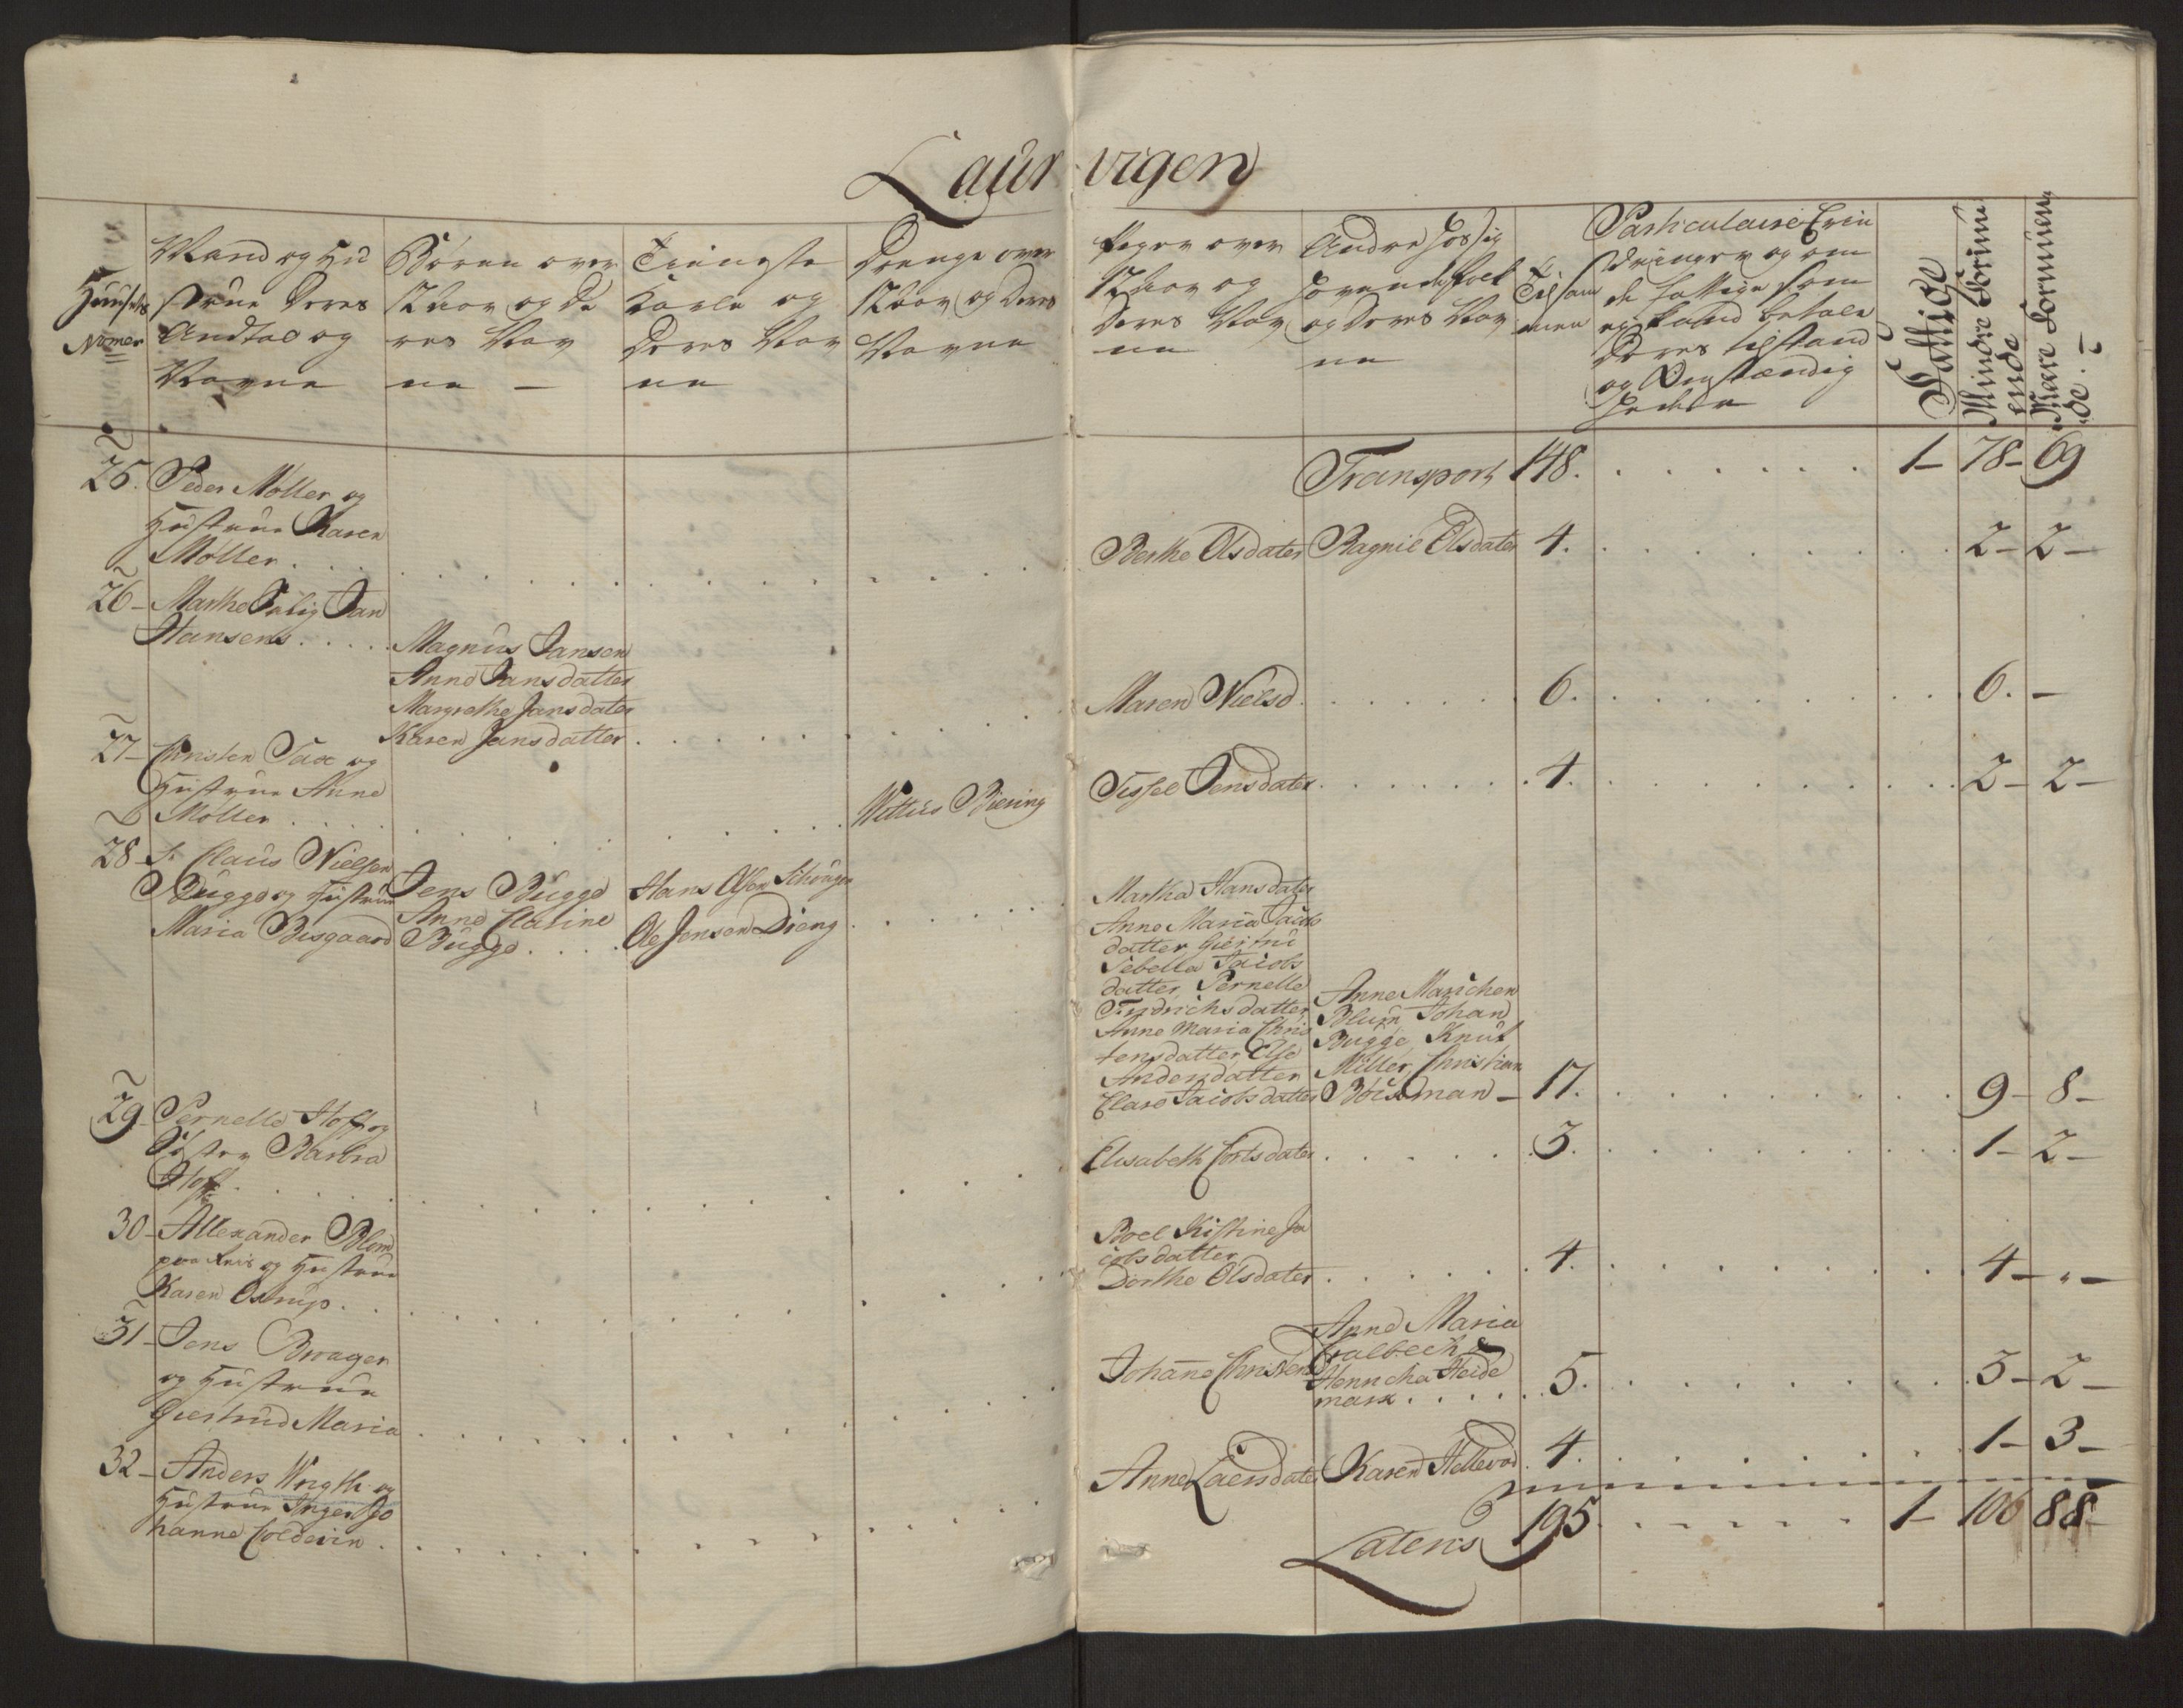 Laurvigen
Huusets
Nomer
Mand og Hu
strue Deres
Andtal og
Navne
Børen over
12 Aar og De
res Nav
ne —
Tieneste
Karle og
Deres Nav
ne
Drenge over
12 Aar og Deres
Navne
Piger over
12 Aar og
Deres Nav
ne
Andre hos sig
havende folk
og Deres Nav
ne
Tilsam
men
Particulaire Erin
dringer og om
de fattige som
ey kand betale
Deres tilstand
og Omstændig
heder
Fattige
Mindre Formu
ende
Meere Formuen
de
Transport 148. 1— 78— 69
25. Peder Møller og
Hustrue Karen
Møller
Berthe Olsdater Ragnil Olsdater 4. 2— 2—
26— Marthe Salig Jan
Hansens
Magnus Jansen
Anne Jansdatter
Margrethe Jansdater
Karen Jansdatter
Maren Nielsd 6. 6. —
27— Christen Sax og
Hustrue Anne
Møller
Biering
Sissel Jensdater 4. 2— 2—
28 Sr Claus Nielsen
Bugge og Hustrue
Maria Bisgaard
Jens Bugge
Anne Clasine
Bugge
Hans Olsen
Ole Jensen Dreng
Martha Hansdater
Anne Maria Jacobs
datter
Sebella Jacobs
datter Pernelle
Fridrichsdatter
Anne Maria Chris
tensdatter Else
Andersdatter
Clare Jacobsdatter
Anne Marichen
Blum Johan
Bugge Knut
Miller Christian
17. 9— 8—
29— Pernelle Hoff og
Søster Barbra
Hoff
Elisabeth Cortsdater 3. 1— 2—
30— Allexander Blom
og Hustrue
Karen Ostrup
Boel Kistine Ja
cobsdatter
Dorthe Olsdater 4. 4— „—
31— Jens Brager
og Hustrue
Giertrud Maria
Johane Christens
Anne Maria
Falbech &
Henricha Heide
mark 5. 3— 2—
32— Anders Wrigth og
Hustrue Inger Jo
hanne Coldevin
Anne Laersdater Karen Hellevad 4. 1— 3—
Latens 195. 1— 106 88